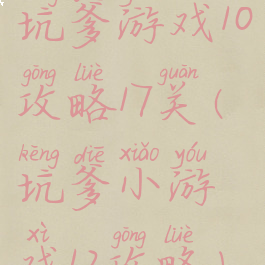 坑爹游戏10
gōng lüè guān
攻略17关(
kēng diē xiǎo yóu
坑爹小游
xì gōng lüè
戏12攻略)